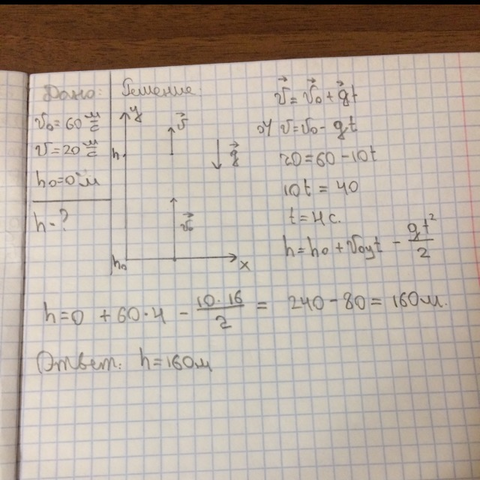 Дано:
v₀=60 м/с
v=20 м/с
h₀=0 м
h-?
Решение:
y
v⃗
h
g⃗
v⃗₀
h₀
x
v⃗=v⃗₀+g⃗t
оу v=v₀-gt
20=60-10t
10t=40
t=4с.
h=h₀+v₀yt-gt²/2
h=0+60·4-10·16/2=240-80=160м.
Ответ: h=160м